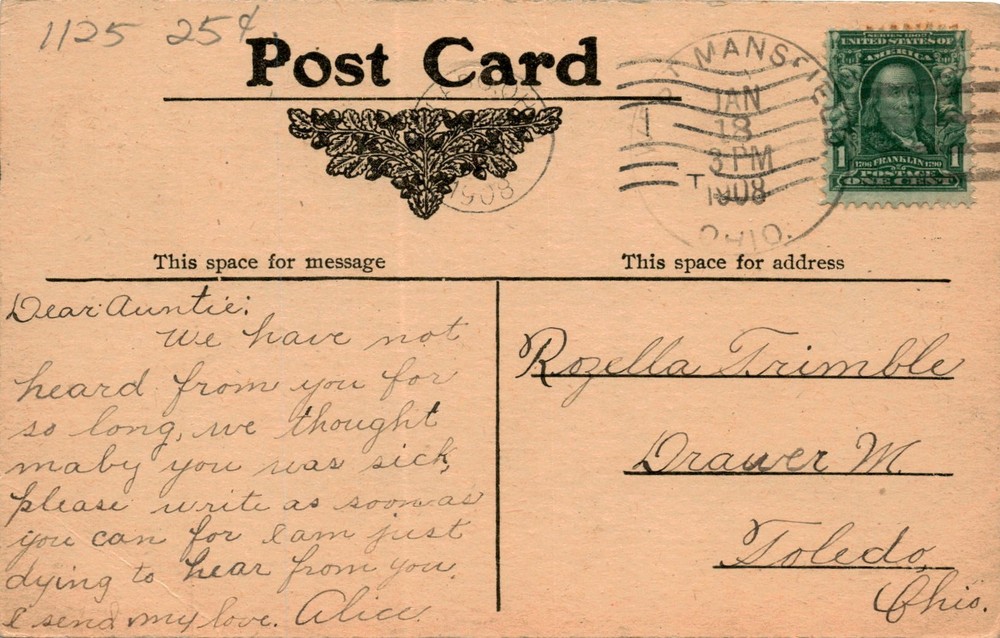 1125 25¢
Post Card
MANSFIELD
JAN
18
3 PM
1908
OHIO.
1908
SERIES 1902
UNITED STATES OF
AMERICA
1 1
1706 FRANKLIN 1790
POSTAGE
ONE CENT
This space for message
This space for address
Dear Auntie:
We have not
heard from you for
so long, we thought
maby you was sick,
please write as soon as
you can for I am just
dying to hear from you.
I send my love. Alice.
Rozella Trimble
Drawer M.
Toledo,
Ohio.